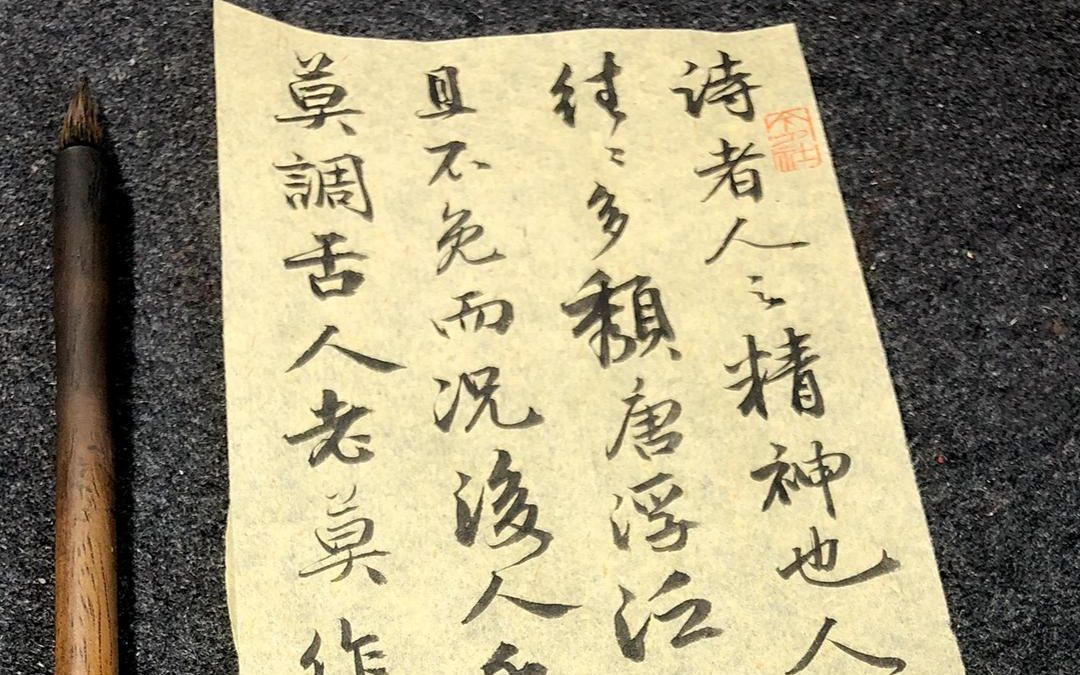 詩者人之精神也人
往〻多頹唐浮泛
且不免而況後人
莫調舌人老莫作